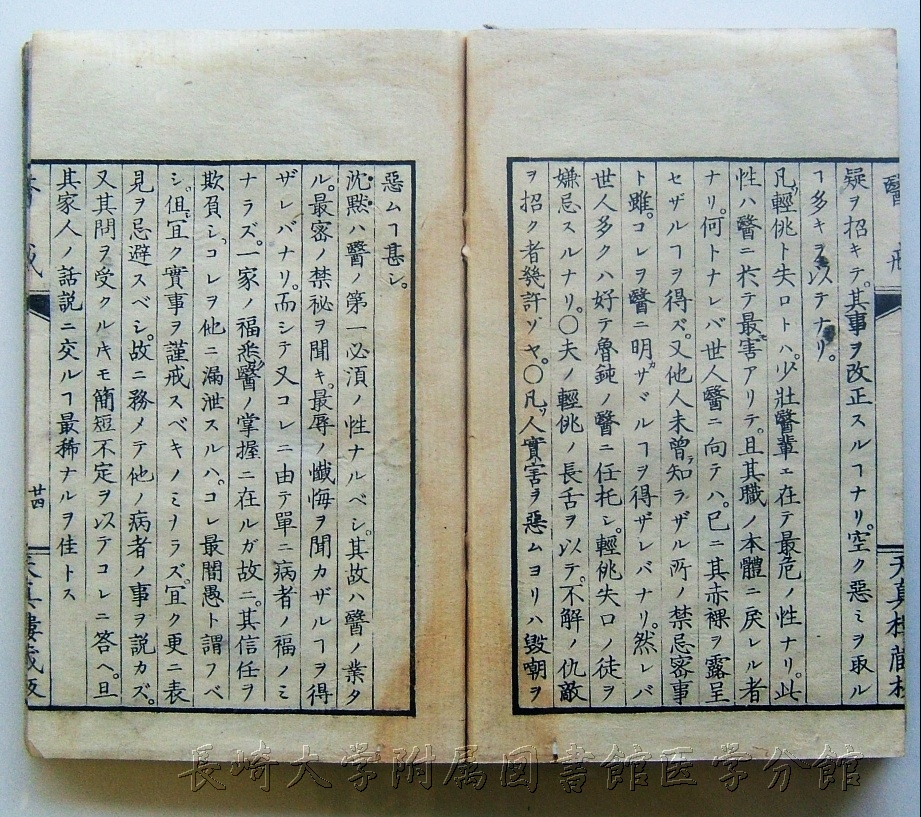 醫戒
疑ヲ招キテ。其事ヲ改正スルヿナリ。空ク惡ミヲ取ル
ヿ多キヲ以テナリ。
凡ソ輕佻ト失口トハ。少壯醫輩ニ在テ最危ノ性ナリ。此
性ハ醫ニ於テ最害アリテ。且其職ノ本體ニ戻レル者
ナリ。何トナレバ世人醫ニ向テハ。已ニ其赤裸ヲ露呈
セザルヿヲ得ズ。又他人未曾テ知ラザル所ノ禁忌密事
ト雖。コレヲ醫ニ明サヾルヿヲ得ザレバナリ。然レバ
世人多クハ好テ魯鈍ノ醫ニ任托シ。輕佻失口ノ徒ヲ
嫌忌スルナリ。〇夫ノ輕佻ノ長舌ヲ以テ。不解ノ仇敵
ヲ招ク者幾許ゾヤ。〇凡ソ人實害ヲ惡ムヨリハ毀嘲ヲ
惡ムヿ甚シ。
沈默ハ醫ノ第一必須ノ性ナルベシ。其故ハ醫ノ業タ
ル。最密ノ禁秘ヲ聞キ。最辱ノ懺悔ヲ聞カザルヿヲ得
ザレバナリ。而シテ又コレニ由テ單ニ病者ノ福ノミ
ナラズ。一家ノ福モ悉ク醫ノ掌握ニ在ルガ故ニ。其信任ヲ
欺負シ。コレヲ他ニ漏泄スルハ。コレ最闇愚ト謂フベ
シ。但シ冝ク實事ヲ謹戒スベキノミナラズ。冝ク更ニ表
見ヲ忌避スベシ。故ニ務メテ他ノ病者ノ事ヲ説カズ。
又其問ヲ受クルキモ簡短不定ヲ以テコレニ答ヘ。且
其家人ノ話説ニ交ルヿ最稀ナルヲ佳トス
廿四
天真樓藏板
長崎大学附属図書館医学分館